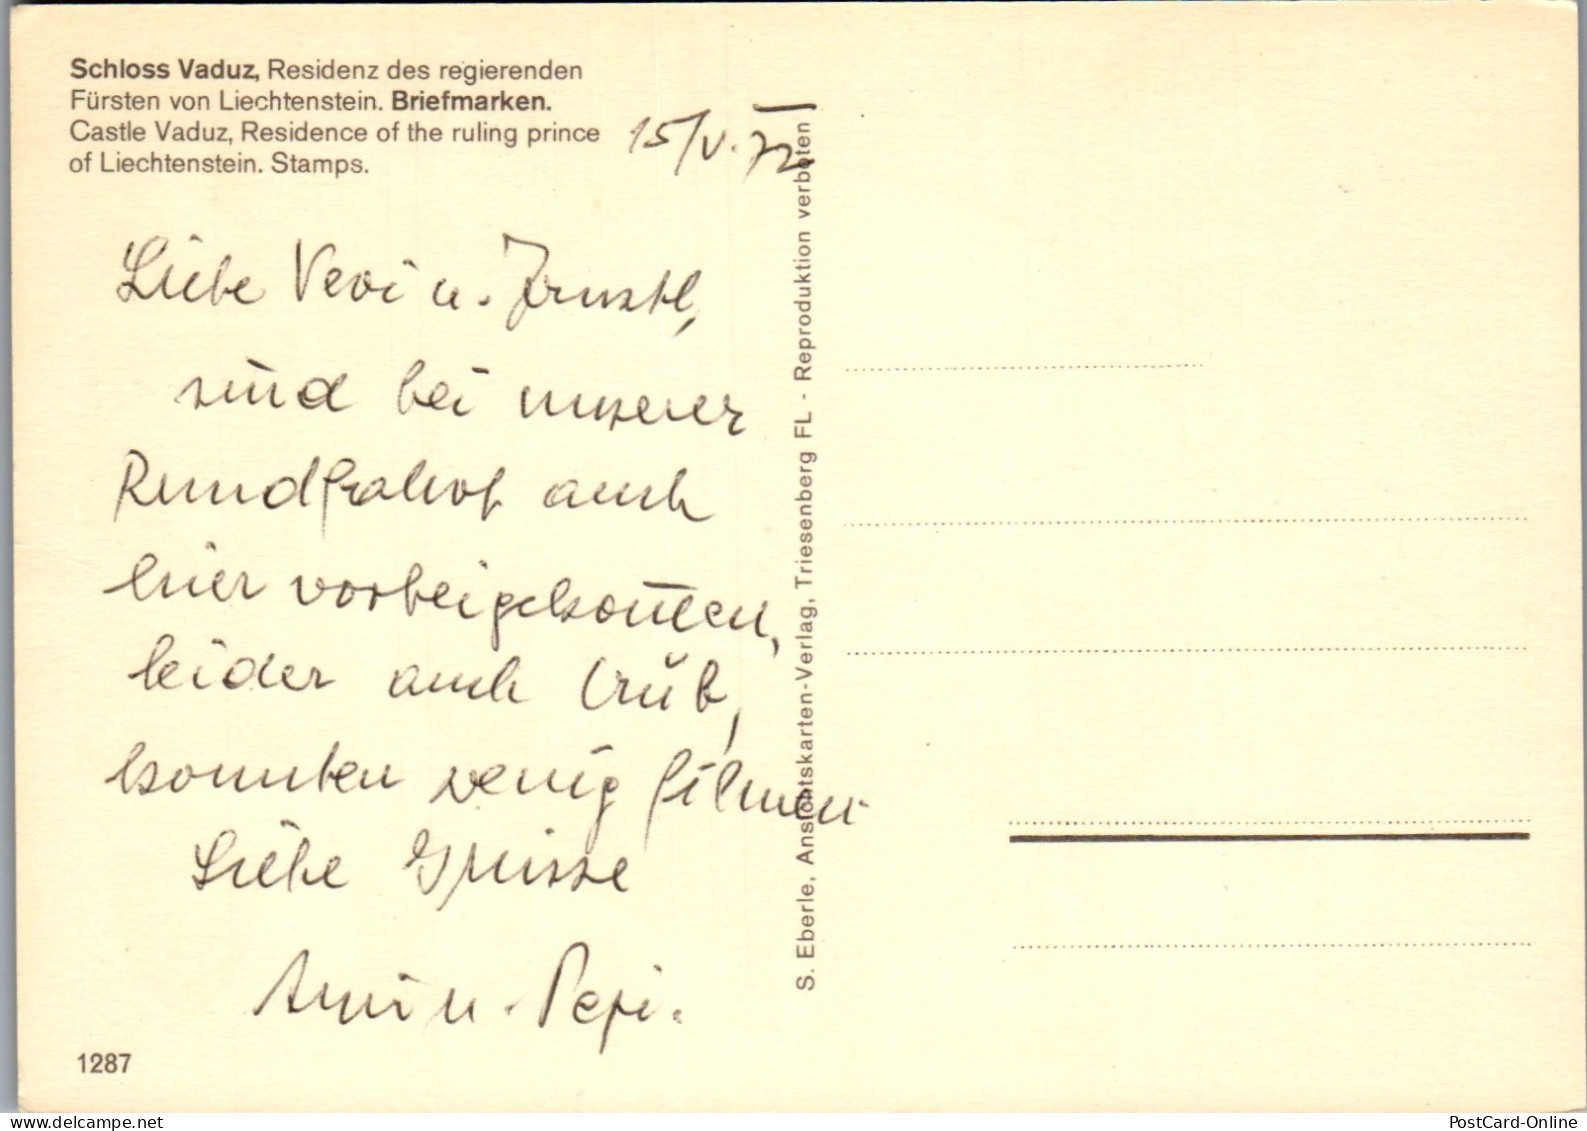 Schloss Vaduz, Residenz des regierenden
Fürsten von Liechtenstein. Briefmarken.
Castle Vaduz, Residence of the ruling prince
of Liechtenstein. Stamps.
15/V. 72
Liebe Vevi u. Ernstl,
sind bei unserer
Rundfahrt auch
hier vorbeigekom̅en,
leider auch trüb,
konnten wenig filmen
Liebe Grüsse
Anni u. Pepi.
1287
S. Eberle, Ansichtskarten-Verlag, Triesenberg FL - Reproduktion verboten
PostCard-Online